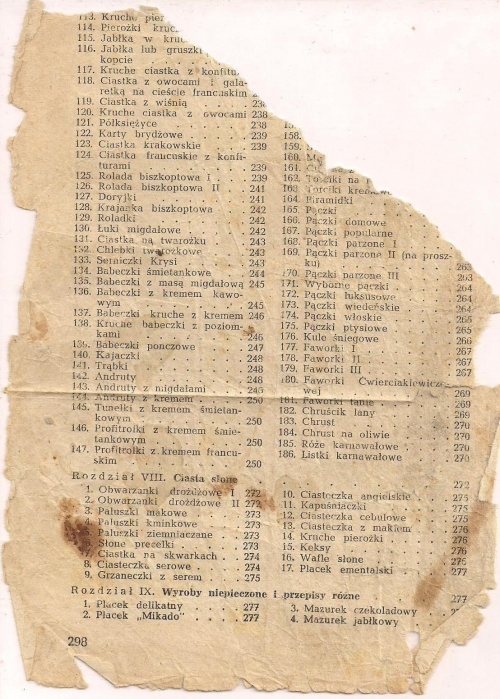 113. Kruche
114. Pierożki
115. Jabłka w
116. Jabłka lub gruszki
kopcie
117. Kruche ciastka z
118. Ciastka z owocami i
retką na cieście francuskim
119. Ciastka z wiśnią
120. Kruche ciastka z owocami 238
121. Półksiężyce 238
122. Karty brydżowe 239
123. Ciastka krakowskie 239
124. Ciastka francuskie z konfi-
turami 239
125. Rolada biszkoptowa I 239
126. Rolada biszkoptowa II 241
127. Doryjki 241
128. Krajanka biszkoptowa 242
129. Roladki 242
130. Łuki migdałowe 242
131. Ciastka na twarożku 243
132. Chlebki twarożkowe 243
133. Serniczki Krysi 243
134. Babeczki śmietankowe 244
135. Babeczki z masą migdałową 245
136. Babeczki z kremem kawo-
wym 245
137. Babeczki kruche z kremem 246
138. Kruche babeczki z poziom-
kami 246
139. Babeczki ponczowe 247
140. Kajaczki 248
141. Trąbki 248
142. Andruty 248
143. Andruty z migdałami
144. Andruty z kremem 250
145. Tunelki z kremem śmietan-
kowym 250
146. Profitrolki z kremem śmie-
tankowym 250
147. Profitrolki z kremem francu-
skim 250
158.
159.
160.
161.
162. Torciki na
163. Torciki
164. Piramidki
165. Pączki
166. Pączki domowe
167. Pączki popularne
168. Pączki parzone I
169. Pączki parzone II (na prosz-
ku) 263
170. Pączki parzone III 263
171. Wyborne pączki 264
172. Pączki luksusowe 264
173. Pączki wiedeńskie 264
174. Pączki włoskie 265
175. Pączki ptysiowe 265
176. Kule śniegowe 266
177. Faworki I 267
178. Faworki II 267
179. Faworki III 267
180. Faworki Ćwierciakiewiczo-
wej 269
181. Faworki tanie 269
182. Chruścik lany 269
183. Chrust 270
184. Chrust na oliwie 270
185. Róże karnawałowe 270
186. Listki karnawałowe 270
Rozdział VIII. Ciasta słone 272
1. Obwarzanki drożdżowe I 272
2. Obwarzanki drożdżowe II 272
3. Paluszki makowe 273
4. Paluszki kminkowe 273
Paluszki ziemniaczane 273
Słone precelki 273
7. Ciastka na skwarkach 274
8. Ciasteczka serowe 274
9. Grzaneczki z serem 275
10. Ciasteczka angielskie 275
11. Kapuśniaczki 275
12. Ciasteczka cebulowe 275
13. Ciasteczka z makiem 276
14. Kruche pierożki 276
15. Keksy 276
16. Wafle słone 276
17. Placek ementalski 277
Rozdział IX. Wyroby niepieczone i przepisy różne 277
1. Placek delikatny 277
2. Placek „Mikado” 277
3. Mazurek czekoladowy
4. Mazurek jabłkowy
298